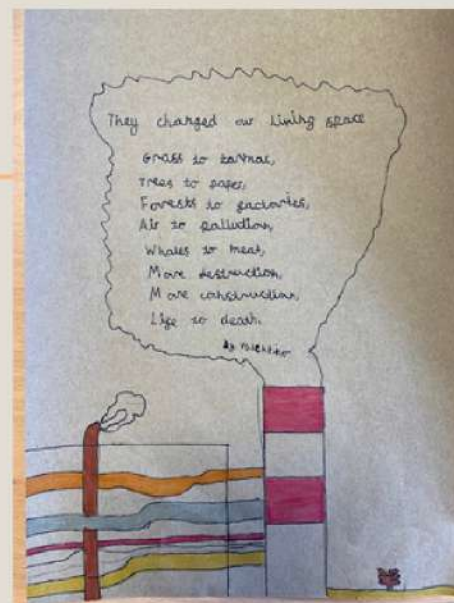 They changed our Living space
Grass to tarmac,
Trees to paper,
Forests to factories,
Air to pollution,
Whales to meat,
More destruction,
More construction,
Life to death.
By